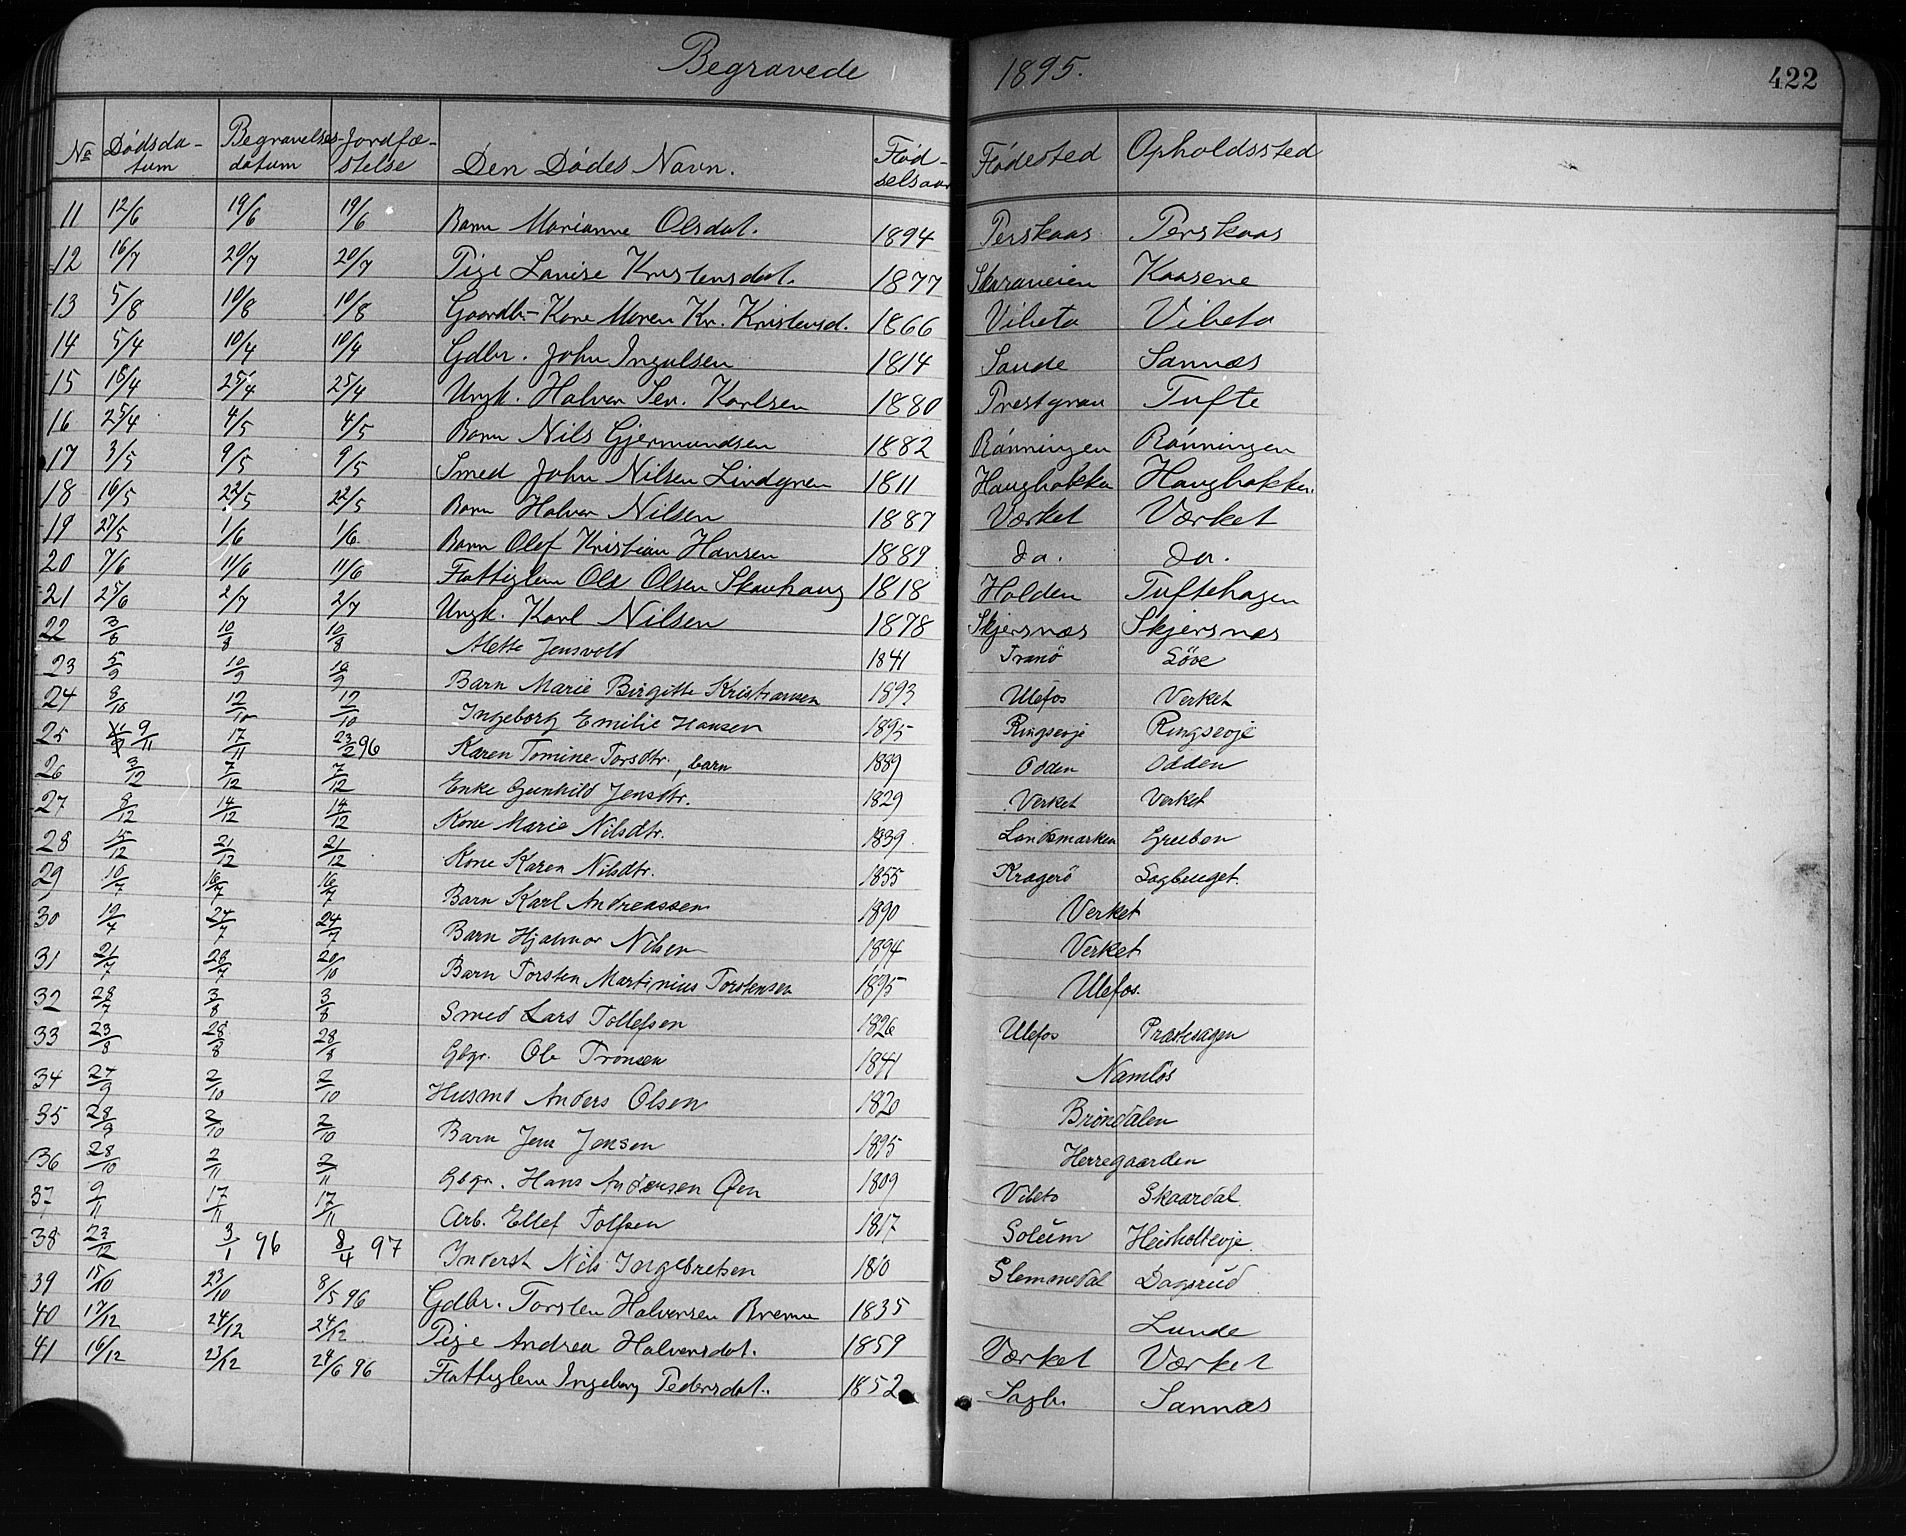 Begravede 1895. 422
No Dødsdatum Begravelsesdatum Jordfæstelse Den Dødes Navn. Fødselsaar Fødested Opholdssted
11 12/6 19/6 19/6 Barn Marianne Olsdat. 1894 Perskaas Perskaas
12 16/7 20/7 20/7 Pige Lovise Kristensdat. 1877 Skaraveien Kaasene
13 5/8 10/8 10/8 Gaardbr.-Kone Maren Kr. Kristensd. 1866 Vibeto Vibeto
14 5/4 10/4 10/4 Gdbr. John Ingulsen 1814 Sande Sannæs
15 18/4 25/4 25/4 Ungk. Halvor Sev. Karlsen 1880 Prestgrav Tufte
16 25/4 4/5 4/5 Barn Nils Gjermundsen 1882 Rønningen Rønningen
17 3/5 9/5 9/5 Smed John Nilsen Lindgren 1811 Haugbakka Haugbakken
18 16/5 22/5 22/5 Barn Halvor Nilsen 1887 Værket Værket
19 27/5 1/6 1/6 Barn Olef Kristian Hansen 1889 do. do.
20 7/6 11/6 11/6 Fattiglem Ole Olsen Skauhaug 1818 Holden Tuftehagen
21 25/6 2/7 2/7 Ungk. Karl Nilsen 1878 Skjersnæs Skjersnæs
22 3/8 10/8 10/8 Mette Jensvold 1841 Tranö Söve
23 5/9 10/9 10/9 Barn Marie Birgitte Kristiansen 1893 Ulefos Verket
24 8/10 12/10 12/10 Ingeborg Emilie Hansen 1895 Ringsevje Ringsevje
25 9/11 17/11 23/2 96 Karen Tomine Torsdtr., barn 1889 Odden Odden
26 3/12 7/12 7/12 Enke Gunhild Jensdtr. 1829 Verket Verket
27 8/12 14/12 14/12 Kone Marie Nilsdtr. 1839 Landsmarken Gruben
28 15/12 21/12 21/12 Kone Karen Nilsdtr. 1855 Kragerö Sagbruget.
29 10/7 16/7 16/7 Barn Karl Andreassen 1890 Verket
30 19/7 24/7 24/7 Barn Hjalmar Nilsen 1894 Verket
31 21/7 28/7 20/10 Barn Torsten Martinius Torstensen 1895 Ulefos.
32 28/7 3/8 3/8 Smed Lars Tollefsen 1826 Ulefos Præstesagen
33 23/8 28/8 28/8 Gbgr. Ole Tronsen 1841 Namlös
34 27/9 2/10 2/10 Husmd Anders Olsen 1820 Bröndalen
35 28/9 2/10 2/10 Barn Jens Jensen 1895 Herregaarden
36 28/10 2/11 2/11 Gbgr. Hans Andersen Øen 1809 Vibeto Skaardal.
37 9/11 17/11 17/11 Arb. Ellef Tolfsen 1817 Solum Heisholtevje.
38 23/12 3/1 96 8/4 97 Inderst Nils Ingebretsen 1810 Slemmedal Dagsrud
39 15/10 23/10 8/5 96 Gdbr. Torsten Halvorsen 1835 Lunde
40 17/12 24/12 24/12 Pige Andrea Halvorsdat. 1859 Værket Værket
41 16/12 23/12 24/6 96 Fattiglem Ingeborg Pedersdat. 1852 Sagbr. Sannæs